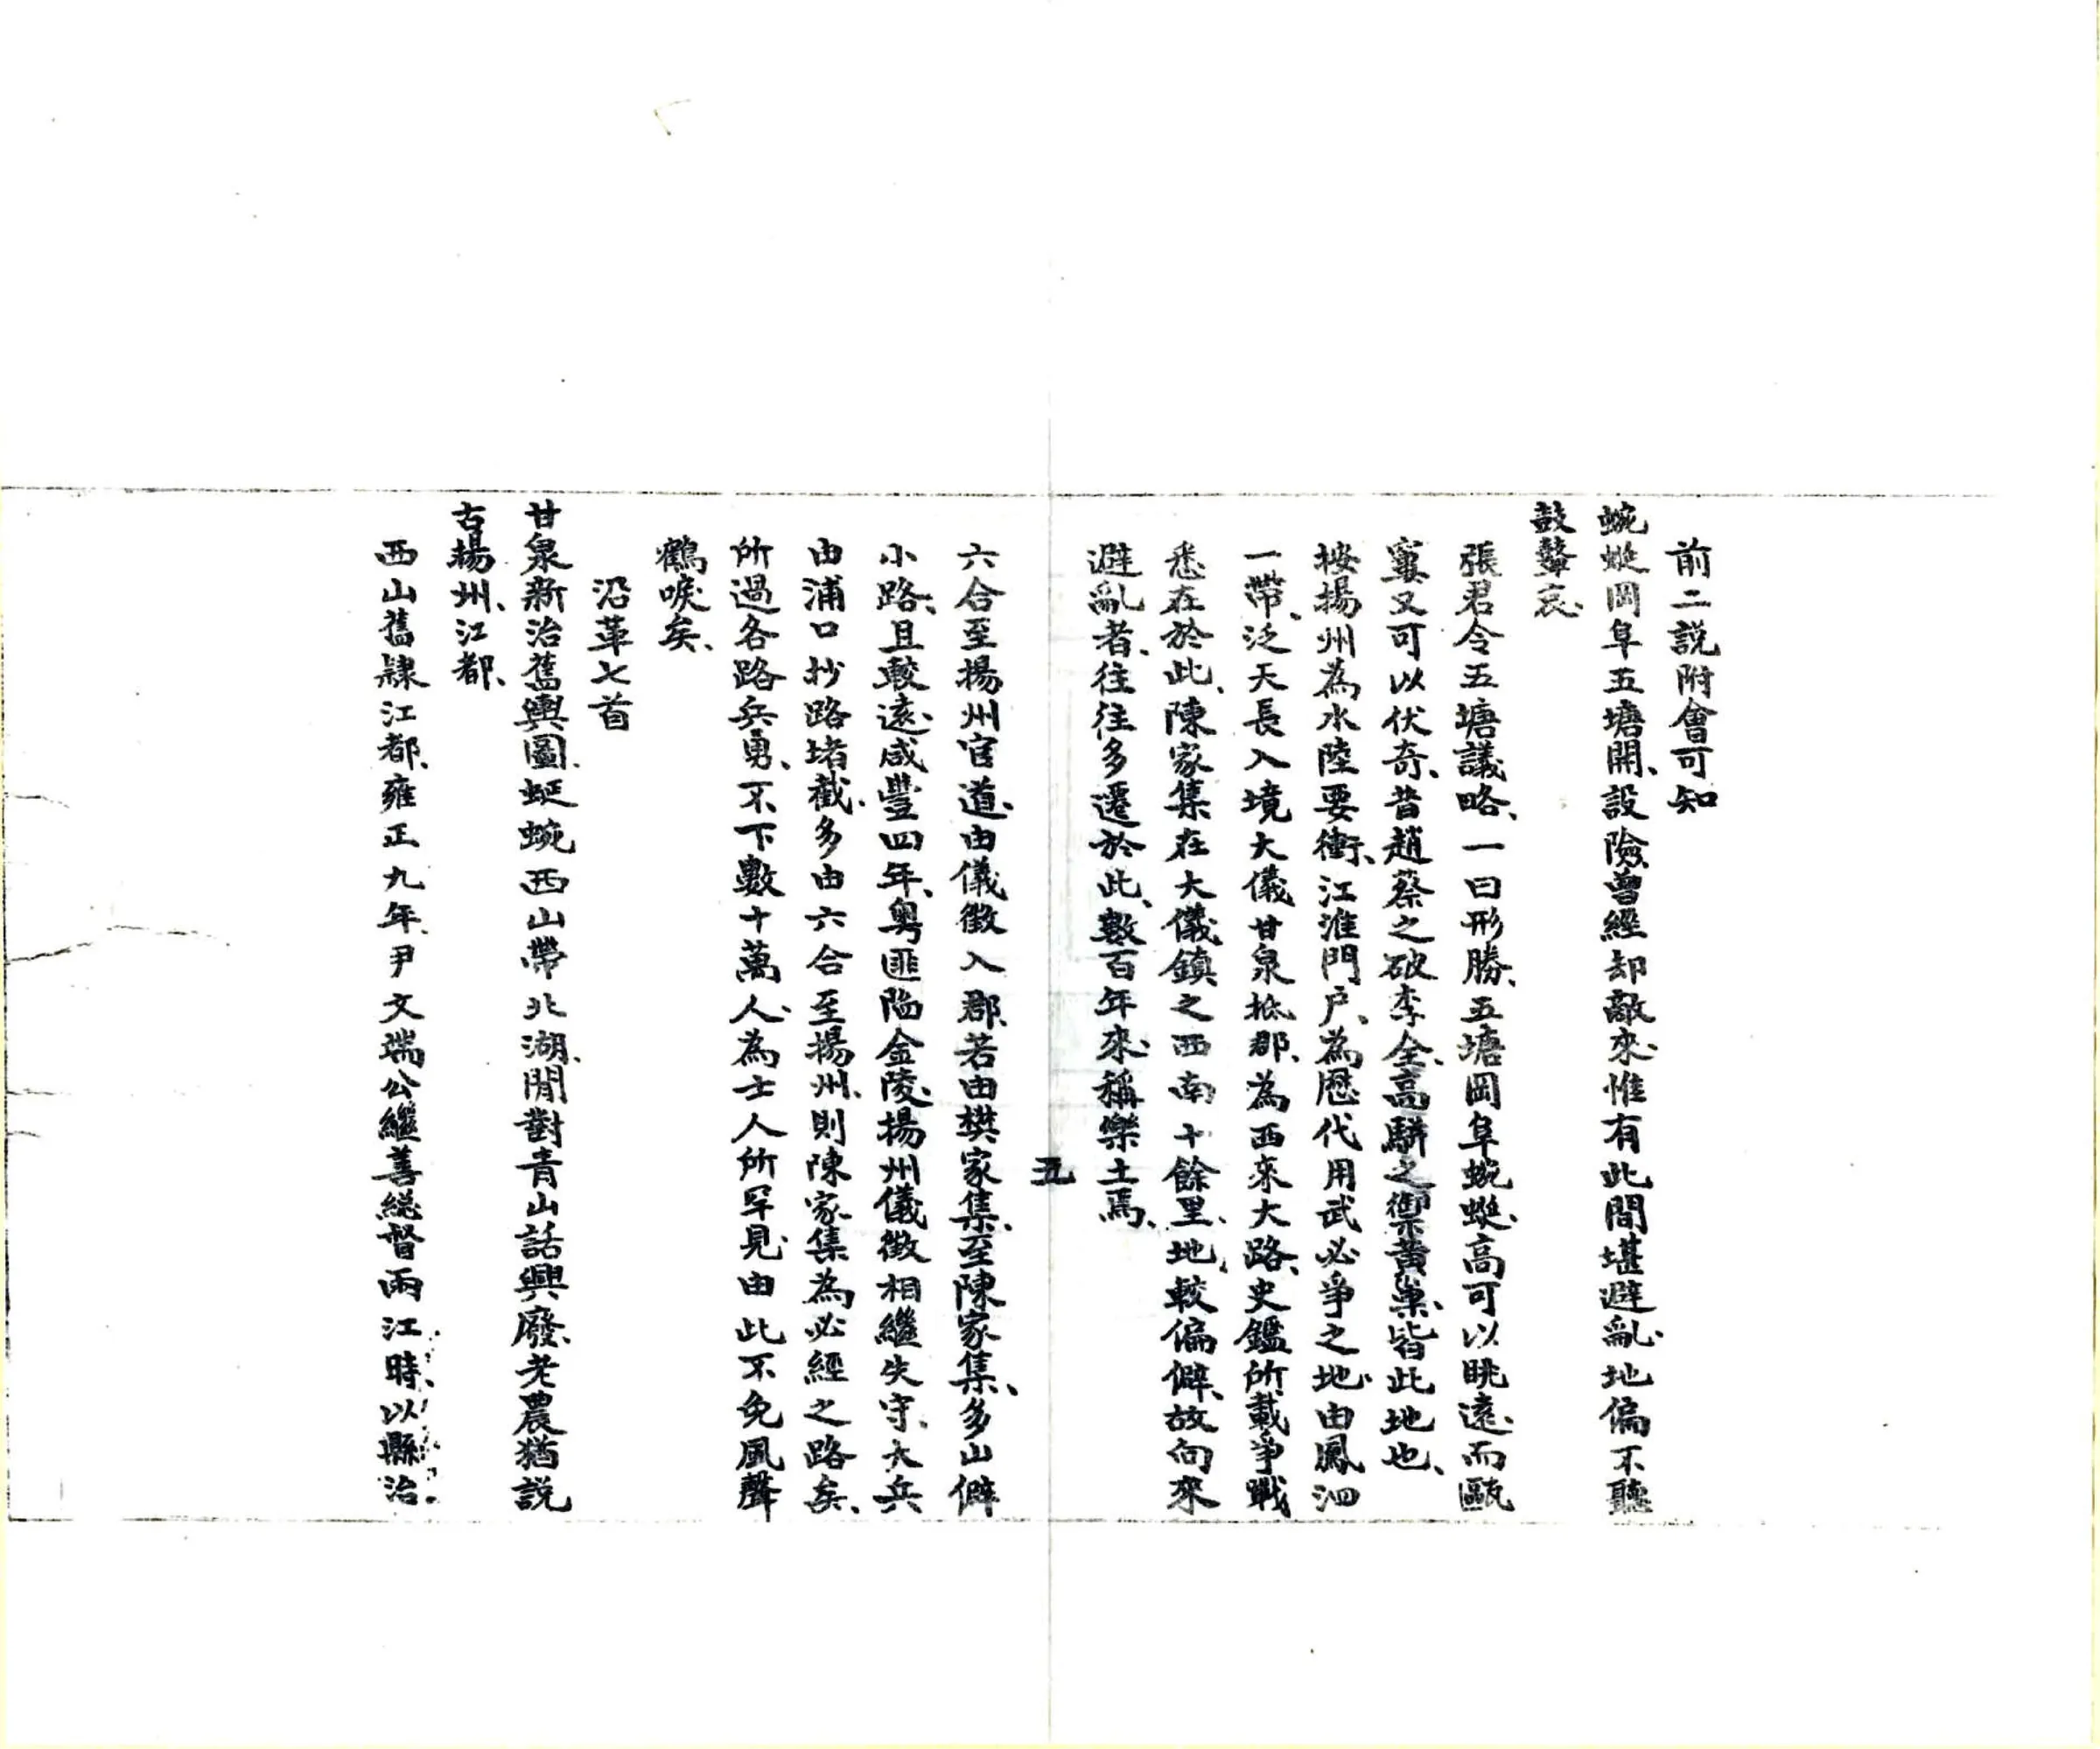 前二説附會可知
蜿蜒岡阜五塘開、設險曾經却敵來、惟有此間堪避亂、地偏不聽
鼓鼙哀、
張君令五塘議略、一曰形勝、五塘岡阜蜿蜒、高可以眺遠、而甌
窶又可以伏奇、昔趙蔡之破李全、高駢之禦黃巢、皆此地也、
按揚州為水陸要衝、江淮門户、為歷代用武必爭之地、由鳳泗
一帶、泛天長入境大儀甘泉抵郡、為西來大路、史鑑所載爭戰
悉在於此、陳家集在大儀鎮之西南十餘里、地較偏僻、故向來
避亂者、往往多遷於此、數百年來、稱樂土焉、
五
六合至揚州官道、由儀徵入郡、若由樊家集、至陳家集、多山僻
小路、且較遠、咸豐四年、粤匪陷金陵、揚州儀徵相繼失守、大兵
由浦口抄路堵截、多由六合至揚州、則陳家集為必經之路矣、
所過各路兵勇、不下數十萬人、為士人所罕見、由此不免風聲
鶴唳矣、
沿革七首
甘泉新治舊輿圖、蜒蜿西山帶北湖、閒對青山話興廢、老農猶説
古揚州、江都、
西山舊隷江都、雍正九年、尹文端公繼善総督兩江時、以縣治